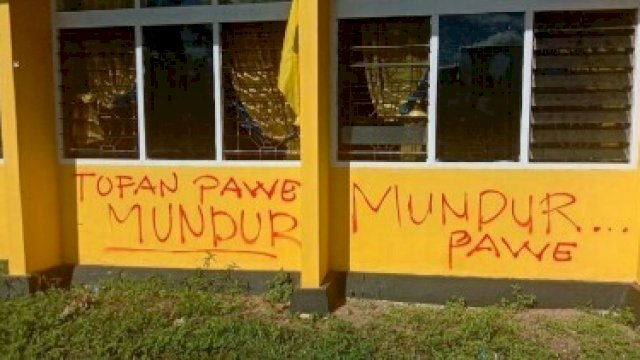 TOPAN PAWE
MUNDUR
MUNDUR...
PAWE